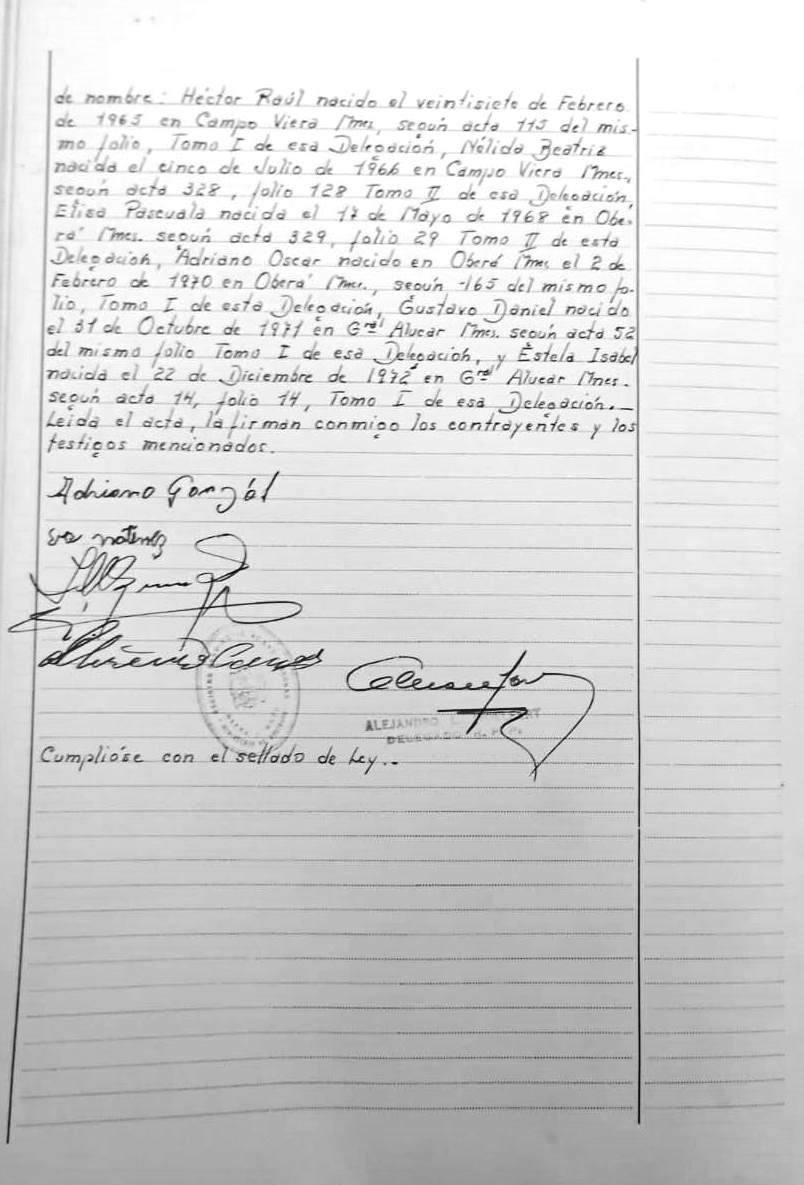 de nombre: Héctor Raúl nacido el veintisiete de Febrero
de 1965 en Campo Viera Mnes, según acta 115 del mis-
mo folio, Tomo I de esa Delegación, Nélida Beatriz
nacida el cinco de Julio de 1966 en Campo Viera Mnes.,
según acta 328, folio 128 Tomo II de esa Delegación,
Elisa Pascuala nacida el 17 de Mayo de 1968 en Obe-
rá Mnes. según acta 329, folio 29 Tomo II de esta
Delegación, Adriano Oscar nacido en Oberá Mnes el 2 de
Febrero de 1970 en Oberá Mnes., según -165 del mismo fo-
lio, Tomo I de esta Delegación, Gustavo Daniel nacido
el 31 de Octubre de 1971 en Gral Alvear Mnes. según acta 52
del mismo folio Tomo I de esa Delegación, y Estela Isabel
nacida el 22 de Diciembre de 1972 en Gral Alvear Mnes.
según acta 14, folio 14, Tomo I de esa Delegación._
Leída el acta, la firman conmigo los contrayentes y los
testigos mencionados.
Adriano
ALEJANDRO
DELEGADO
Cumplióse con el sellado de Ley..